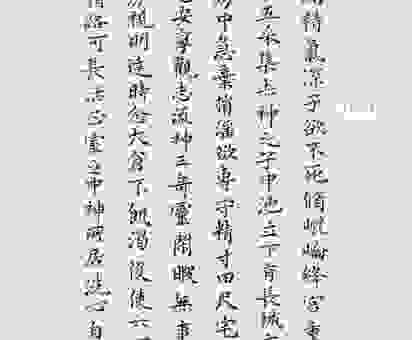 精氣深子欲不死脩崐崘絳宮重
五采集赤神之子中池立下有長城
房中急棄捐淫欲專守精寸田尺宅
安寧觀志流神三奇靈閑暇無事
視明達時念大倉不飢渴役使六
精路可長活正室之中神所居洗心自